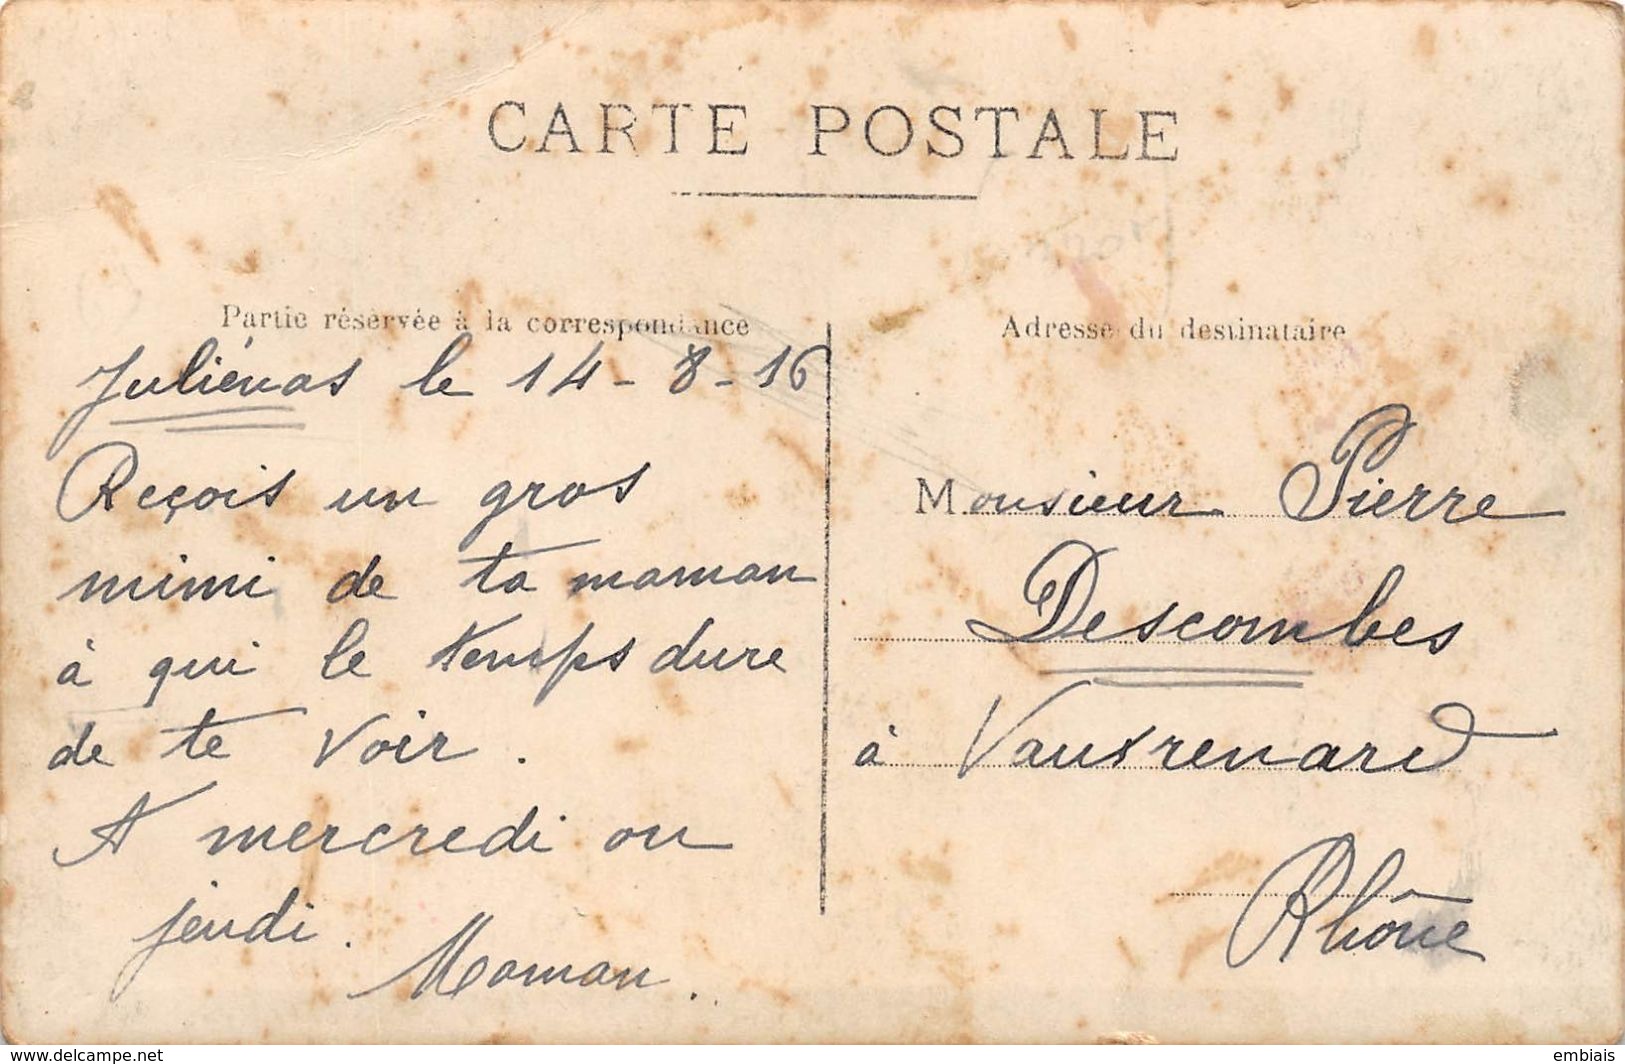 CARTE POSTALE
Partie réservée à la correspondance
Juliénas le 14-8-16
Reçois un gros
mimi de ta maman
à qui le temps dure
de te voir.
A mercredi ou
jeudi.
Maman.
Adresse du destinataire
Monsieur Pierre
Descombes
à Vauxrenard
Rhône
www.delcampe.net
embiais